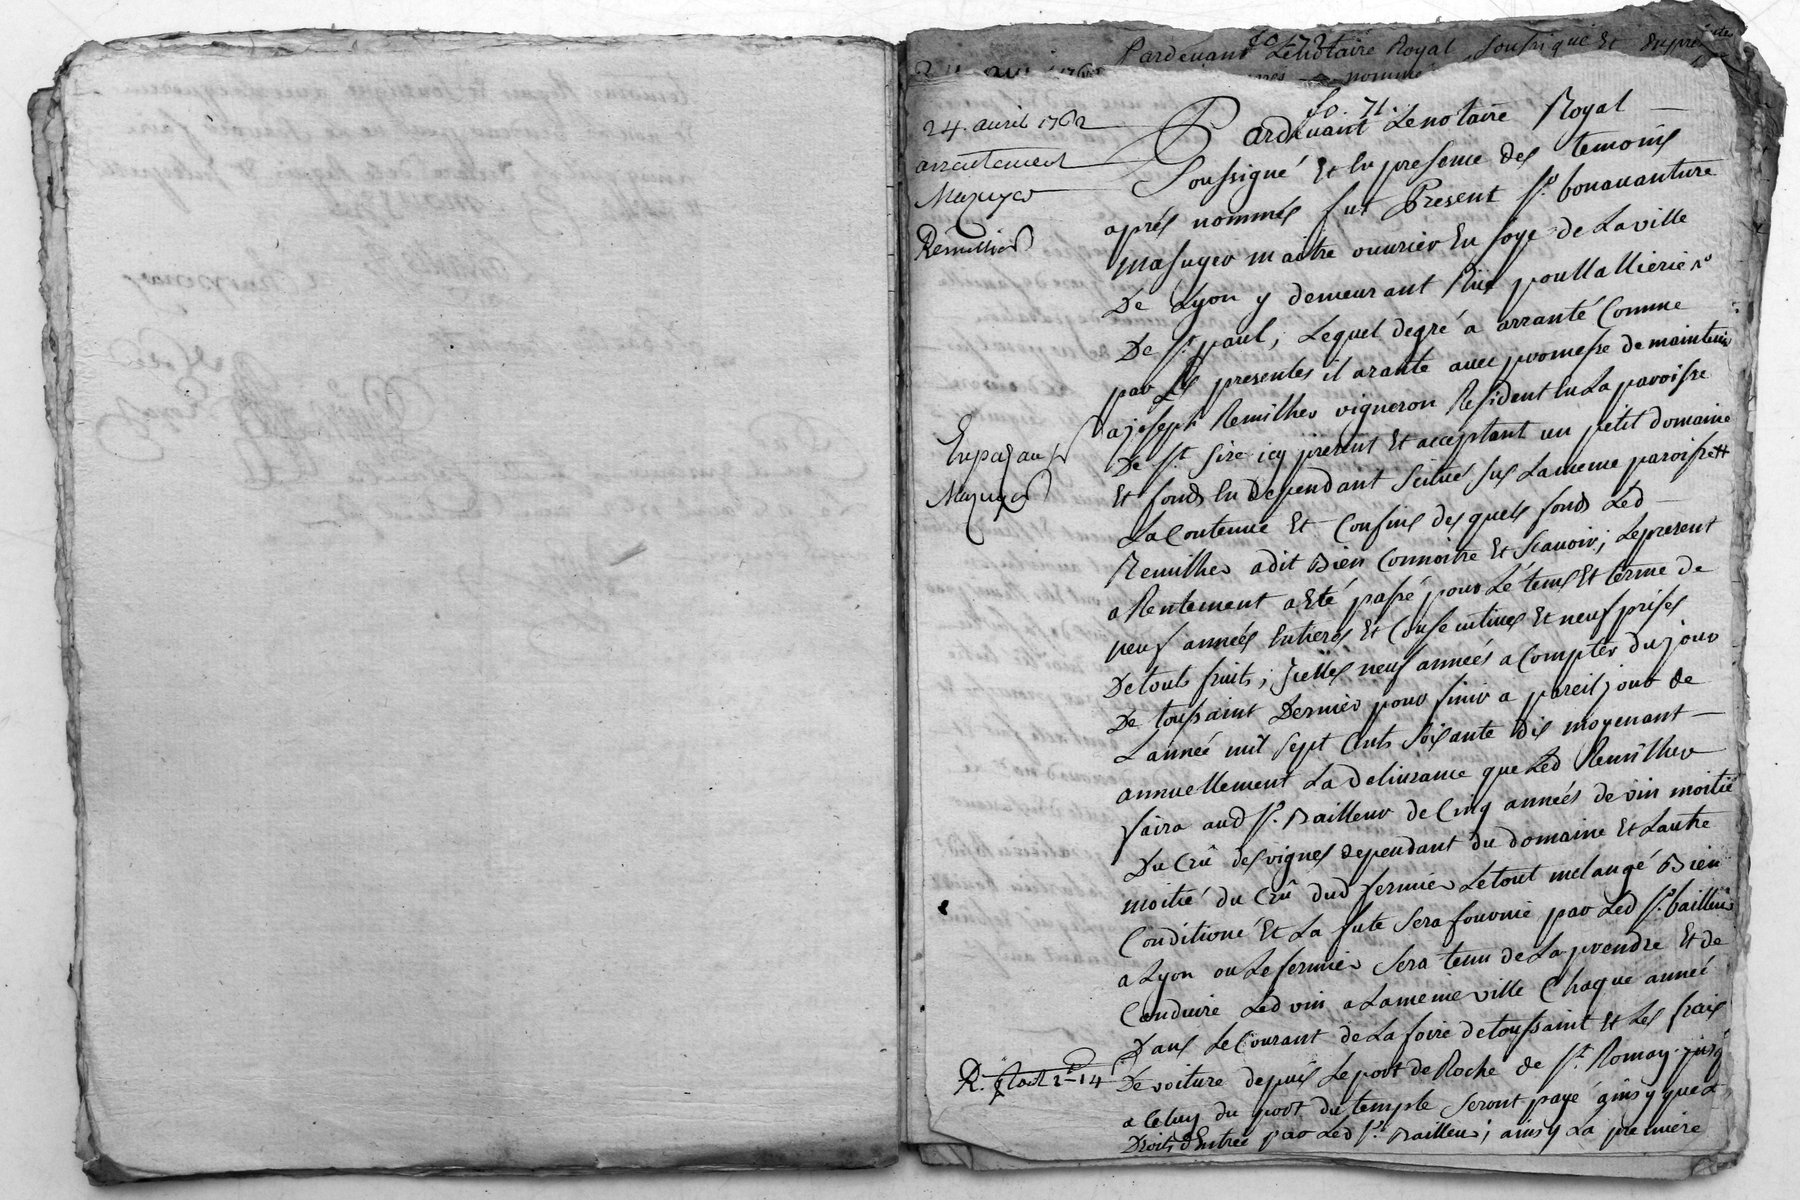 fo. 72
Pardevant Le notaire Royal soussigné Et En pre
nommé
fo. 71.
24. avril 1762
arrentement
Mazuyer
Remillier
Pardevant Le notaire Royal
Soussigné Et En presence des temoins
aprés nommés fut Present Sr. bonavanture
masuyer maitre ouvrier En soye de La ville
De Lyon y demeurant Rüe poullallierie
De St. paul, Lequel de gré a arranté Comme
par Les presentes il arante avec promesse de maintenir
a joseph Remilher vigneron Resident En La paroisse
De St. Sire icy present Et acceptant un petit domaine
Et fonds En Dependant Scitués sus La meme paroisse
La Contenue Et Confins desquels fonds Led
Remilher a dit Bien Connoitre Et Scavoir; Le present
a Rentement a Eté passé pour Le tems Et terme de
neuf années Entieres Et Consecutives Et neuf prises
De touts fruits; Jcelles neuf années a Compter du jour
De toussaint Dernier pour finir a pareil jour de
L'année mil sept Cents soixante dix moyenant
annuellement La delivrance que Led Remilher
faira aud Sr. Bailleur de Cinq années de vin moitié
Du Crû des vignes dependant du domaine Et L'autre
moitié du Crû dud fermier Le tout melangé Bien
Conditioné Et La fute Sera fournie par Led Sr. bailleur
a Lyon ou Le fermier Sera tenu de La prendre Et de
Conduire Led vin a La meme ville Chaque année
Dans Le Courant de La foire de toussaint Et Les frais
De voiture depuis Le port de Roche de St. Romain jusq
a Celuy du port du temple Seront payé ainsy que
Droits d'Entrée par Led Sr. Bailleur; ainsy La premiere
Mazuyer